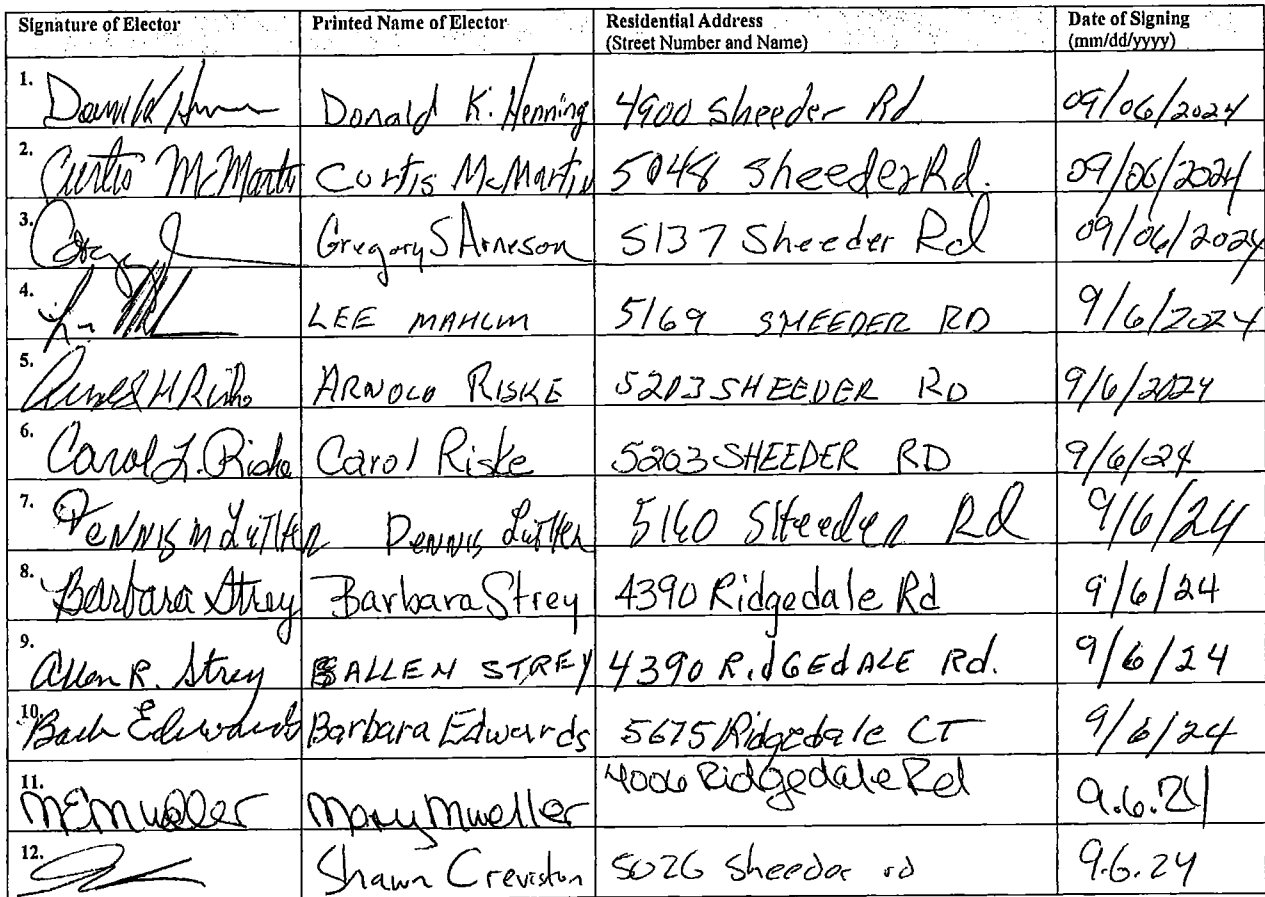 Signature of Elector Printed Name of Elector Residential Address Date of Signing
(Street Number and Name) (mm/dd/yyyy)
1. Donald K. Henning 4900 Sheeder Rd 09/06/2024
2. Curtis McMartin Curtis McMartin 5048 Sheeder Rd. 09/06/2024
3. Gregory S Arneson 5137 Sheeder Rd 09/06/2024
4. LEE MAHLM 5169 SHEEDER RD 9/6/2024
5. Arnold H Riske ARNOLD RISKE 5203 SHEEDER RD 9/6/2024
6. Carol L. Riske Carol Riske 5203 SHEEDER RD 9/6/24
7. DENNIS M LUTHER DENNIS Luther 5160 Sheeder Rd 9/6/24
8. Barbara Strey Barbara Strey 4390 Ridgedale Rd 9/6/24
9. Allen R. Strey ALLEN STREY 4390 RidGEdALE Rd. 9/6/24
10. Barb Edwards Barbara Edwards 5675 Ridgedale CT 9/6/24
11. MEMueller Mary Mueller 4006 Ridgedale Rd 9.6.24
12. Shawn Creviston 5026 Sheeder rd 9.6.24